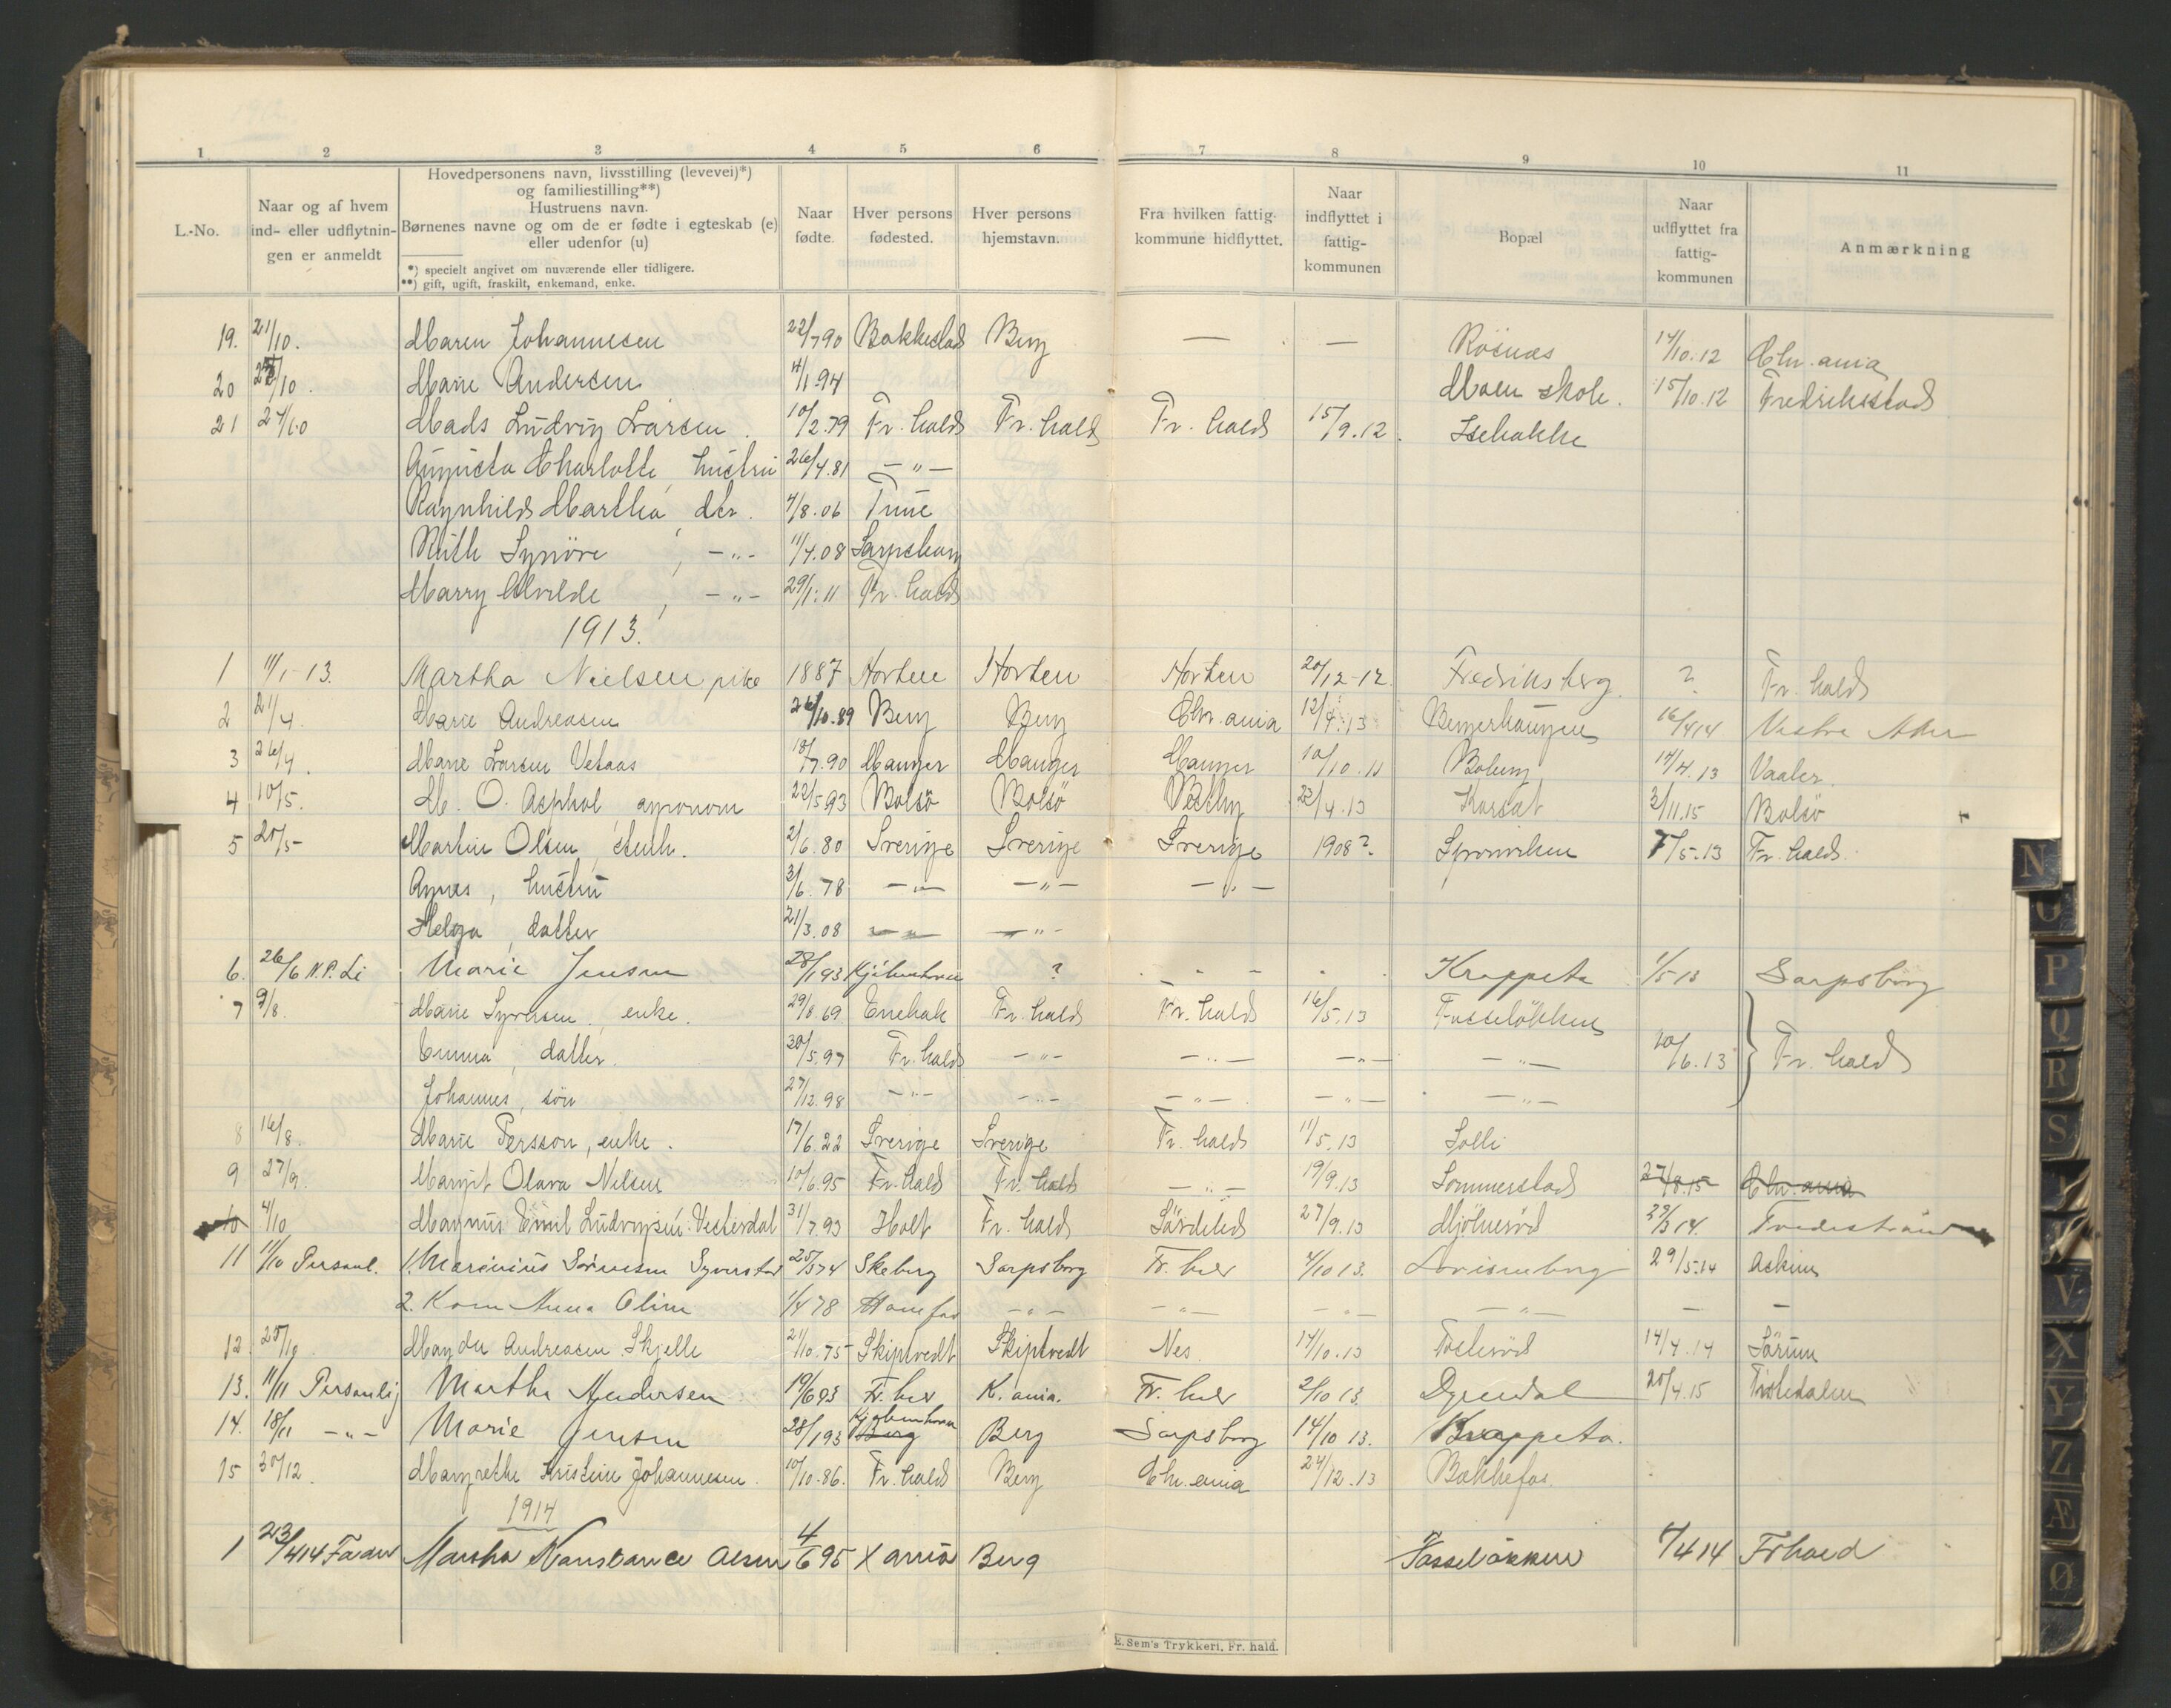 1 2 3 4 5 6 7 8 9 10 11
L.-No.
Naar og af hvem ind- eller udflytningen er anmeldt
Hovedpersonens navn, livsstilling (levevei)*)
og familiestilling**)
Hustruens navn.
Børnenes navne og om de er fødte i egteskab (e)
eller udenfor (u)
*) specielt angivet om nuværende eller tidligere.
**) gift, ugift, fraskilt, enkemand, enke.
Naar fødte.
Hver persons fødested.
Hver persons hjemstavn.
Fra hvilken fattigkommune hidflyttet.
Naar indflyttet i fattigkommunen
Bopæl
Naar udflyttet fra fattigkommunen
Anmærkning
19. 21/10. Maren Johannesen 22/7 90 Bakkestad Berg — — Rösnæs 14/10.12 Chr.ania
20 /10. Marie Andersen 4/1 94 Moen skole. 15/10.12 Fredrikstad
21 24/10 Mads Ludvig Larsen. 10/2.79 Fr. hald Fr. hald Fr. hald 15/9.12. Isebakke
Augusta Charlotte, hustru 26/4.81 — " —
Ragnhild Martha, dtr. 4/8.06 Tune
Ruth Synöve, — " — 11/4.08 Sarpsborg
Marry Alvilde, — " — 29/1.11 Fr. hald
1913.
1 11/1-13. Martha Nielsen pike 1887 Horten Horten Horten 20/12-12. Fredriksberg. ? Fr. hald
2 21/4. Marie Andreasen 26/10.89 Berg Berg Chr.ania 12/4.13 Bergerhaugen 16/4 14 Vestre Aker
3 26/4. Marie Larsen Vetaas 18/7.90 Manger Manger Manger 10/10.11 Boberg 14/4.13 Vaaler.
4 10/5. M. O. Asphol, agronom 22/5 93 Bolsö Bolsö Vestby 23/4.13 Korsæt 2/11.15 Bolsö
5 20/5 Martin Olsen, stenh. 2/6.80 Sverige Sverige Sverige 1908? Sponviken 7/5.13 Fr. hald.
Agnes, hustru 3/6.78 — " — — " — — " —
Helga, datter 21/3.08 — " — — " —
6. 26/6 N.P. Li Marie Jensen 28/1 93 Kjöbenhavn ? Krappeto 1/5 13 Sarpsborg
7 9/8. Marie Syversen, enke. 29/8.69 Enebak Fr. hald Fr. hald 16/5.13 Fosselökken
Emma, datter. 30/5.97 Fr. hald — " — — " — — " — — " — 10/6.13 Fr. hald
Johannes, sön 27/12.98 — " — — " — — " — — " — — " —
8 16/8. Marie Persson, enke. 17/6.22 Sverige Sverige Fr. hald 11/5.13 Solli
9 27/9. Margit Olava Nilsen 10/6.95 Fr. hald Fr. hald — " — 19/9.13 Sommerstad 27/8.15 Chr.ania
10 4/10 Magnus Emil Ludvigsen Vesterdal 31/7.93 Holt Fr. hald Söndeled 27/9.13 Mjölneröd 23/3 14. Tvedestrand
11 11/10 Personl. 1. Marinius Sörensen Syverstad 25/5 74 Skeberg Sarpsborg Fr. hald 4/10 13. Lovisenberg 29/5.14 Askim
2. Karn Anna Oline 1/4 78 — " — — " — — " — — " — — —
12. 25/10. Magda Andreasen Skjelle 21/10.75 Skiptvedt Skiptvedt Nes. 14/10.13 Tosteröd 14/4.14 Sörum
13. 11/11 Personlig Martha Andersen 19/6 93 Fr. hald K.ania. Fr. hald 2/10 13. Dyrendal 20/4.15 Tistedalen "
14. 18/11 — " — Marie Jensen 28/1 93 Kjöbenhavn Berg Berg Sarpsborg 14/10 13. Krappeto.
15 30/12. Margrethe Kristine Johannesen. 10/10.86. Fr. hald Berg Chr.ania 24/12.13 Bakkefos.
1914
1 23/4 14 Fader Martha Konstance Olsen 4/6 95 X ania Berg Fosselökken 7/4 14 Frhald
E. Sem's Trykkeri, Fr. hald.
N
O
P
Q
R
S
V
X
Y
Z
Æ
Ø